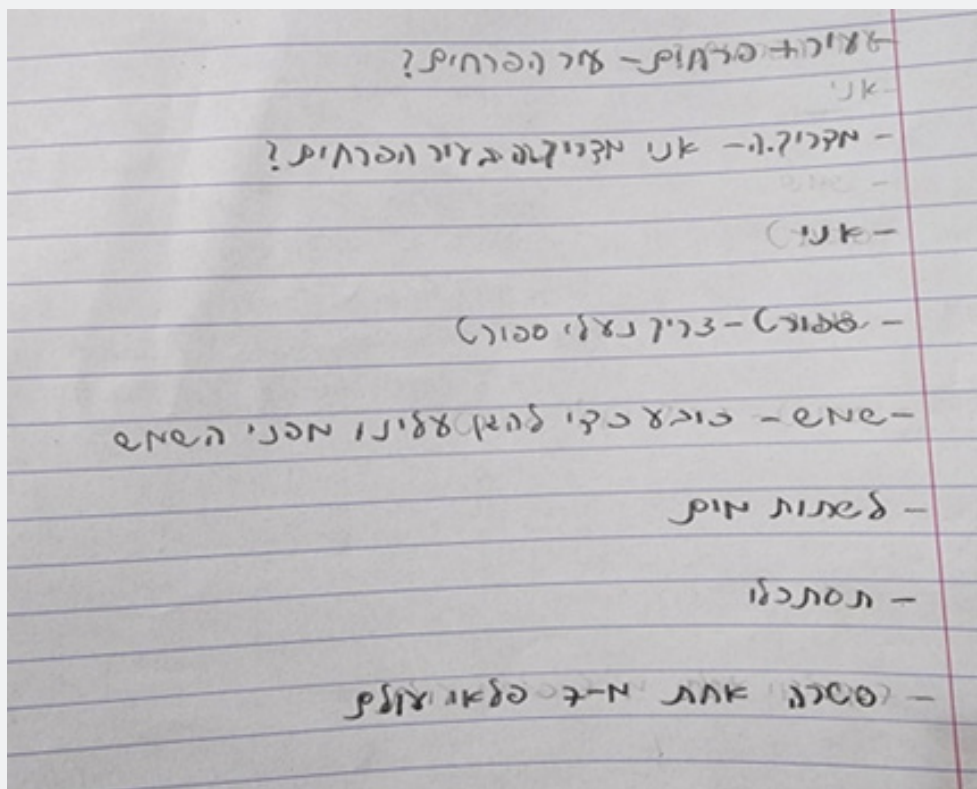 פרחים - עיר הפרחים?
אני
- מדריך.ה - אני בעיר הפרחים?
- אני
- צריך נעלי ספורט
- שמש - כובע כדי להגן עלינו מפני השמש
- לשתות מים
- תסתכלו
- פטרה אחת מ-7 פלאי עולם